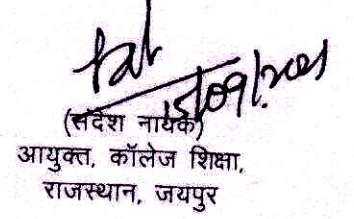 15/09/2021
(संदेश नायक)
आयुक्त, कॉलेज शिक्षा,
राजस्थान, जयपुर